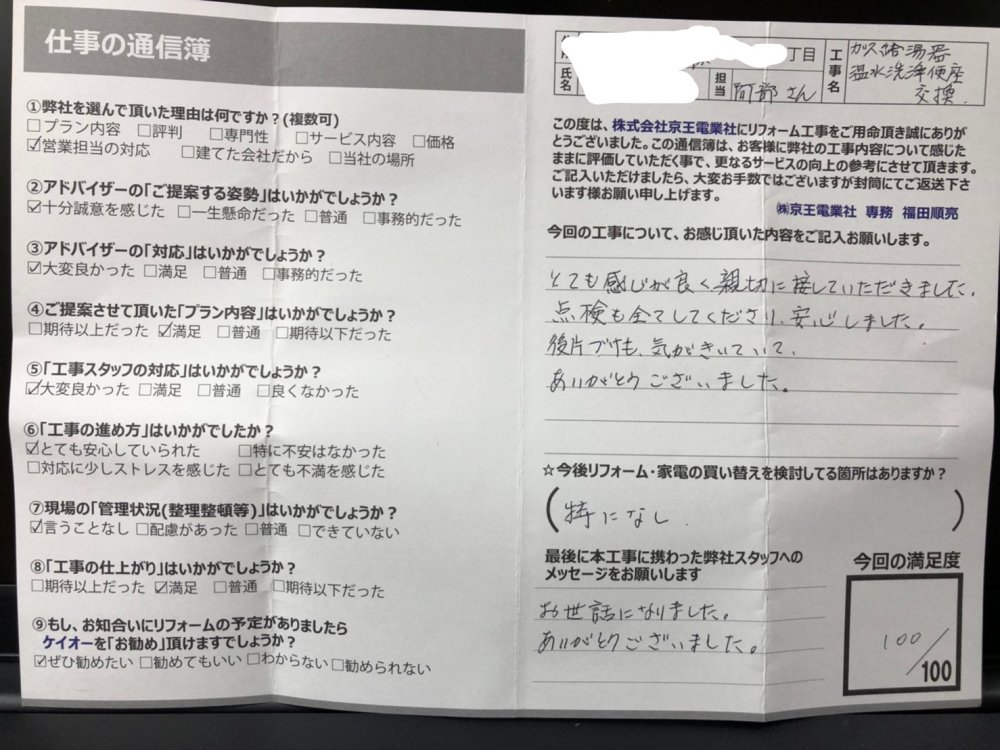 仕事の通信簿
①弊社を選んで頂いた理由は何ですか?(複数可)
□プラン内容 □評判 □専門性 □サービス内容 □価格
☑営業担当の対応 □建てた会社だから □当社の場所
②アドバイザーの「ご提案する姿勢」はいかがでしょうか?
☑十分誠意を感じた □一生懸命だった □普通 □事務的だった
③アドバイザーの「対応」はいかがでしょうか?
☑大変良かった □満足 □普通 □事務的だった
④ご提案させて頂いた「プラン内容」はいかがでしょうか?
□期待以上だった ☑満足 □普通 □期待以下だった
⑤「工事スタッフの対応」はいかがでしょうか?
☑大変良かった □満足 □普通 □良くなかった
⑥「工事の進め方」はいかがでしたか?
☑とても安心していられた □特に不安はなかった
□対応に少しストレスを感じた □とても不満を感じた
⑦現場の「管理状況(整理整頓等)」はいかがでしょうか?
☑言うことなし □配慮があった □普通 □できていない
⑧「工事の仕上がり」はいかがでしょうか?
□期待以上だった ☑満足 □普通 □期待以下だった
⑨もし、お知合いにリフォームの予定がありましたら
ケイオーを「お勧め」頂けますでしょうか?
☑ぜひ勧めたい □勧めてもいい □わからない □勧められない
丁目
氏名
担当
阿部さん
工事名
ガス給湯器
温水洗浄便座
交換.
この度は、株式会社京王電業社にリフォーム工事をご用命頂き誠にありが
とうございました。この通信簿は、お客様に弊社の工事内容について感じた
ままに評価していただく事で、更なるサービスの向上の参考にさせて頂きます。
ご記入いただけましたら、大変お手数ではございますが封筒にてご返送下さ
います様お願い申し上げます。
㈱京王電業社 専務 福田順亮
今回の工事について、お感じ頂いた内容をご記入お願いします。
とても感じが良く親切に接していただきました。
点検も全てしてくださり、安心しました。
後片づけも、気がきいていて、
ありがとうございました。
☆今後リフォーム・家電の買い替えを検討してる箇所はありますか?
(特になし)
最後に本工事に携わった弊社スタッフへの
メッセージをお願いします
お世話になりました。
ありがとうございました。
今回の満足度
100/100